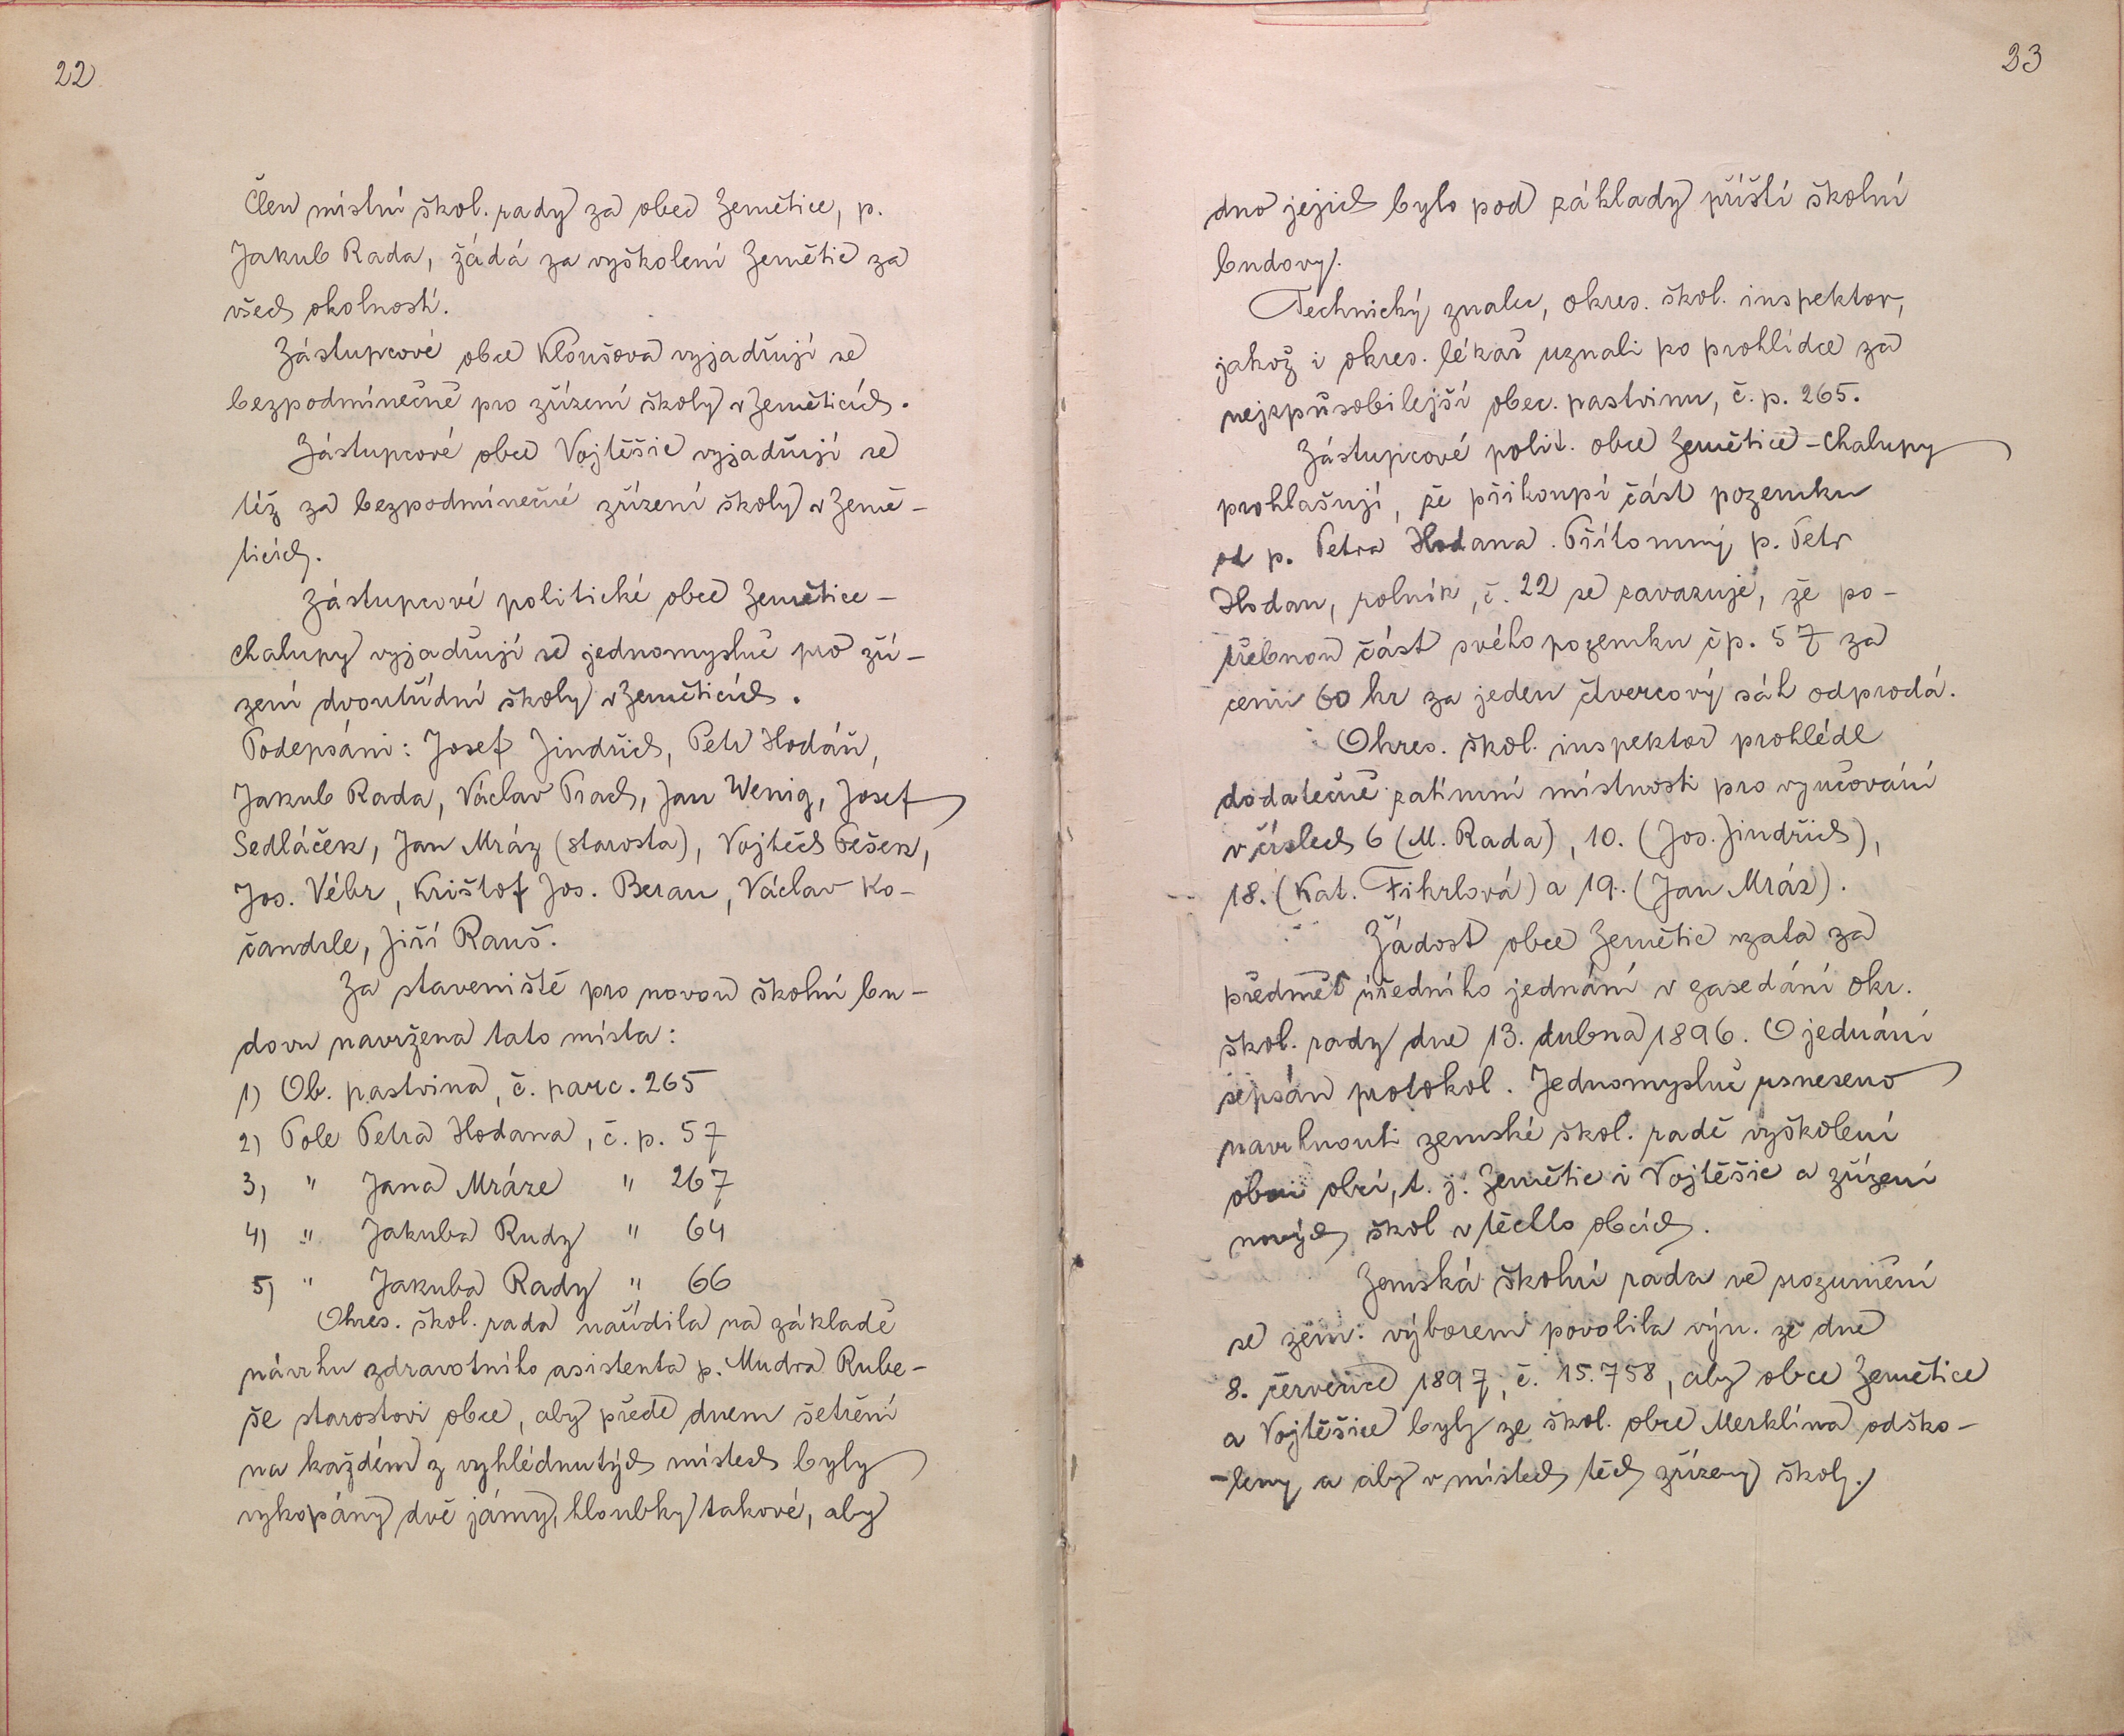 22
Člen místní škol. rady za obec Zemětice, p.
Jakub Rada, žádá za vyškolení Zemětic za
všech okolností.
Zástupcové obce Kloušova vyjadřují se
bezpodmínečně pro zřízení školy v Zeměticích.
Zástupcové obce Vojtěšic vyjadřují se
též za bezpodmínečné zřízení školy v Země-
ticích.
Zástupcové politické obce Zemětice-
Chalupy vyjadřují se jednomyslně pro zří-
zení dvoutřídní školy v Zeměticích.
Podepsáni: Josef Jindřich, Petr Hodáň,
Jakub Rada, Václav Prach, Jan Wenig, Josef
Sedláček, Jan Mráz (starosta), Vojtěch Pešek,
Jos. Vébr, Krištof Jos. Beran, Václav Ko-
čandrle, Jiří Rauš.
Za staveniště pro novou školní bu-
dovu navržena tato místa:
1) Ob. pastvina, č. parc. 265
2) Pole Petra Hodana, č. p. 57
3) " Jana Mráze " 267
4) " Jakuba Rudy " 64
5) " Jakuba Rady " 66
Okres. škol. rada nařídila na základě
návrhu zdravotního asistenta p. Mudra Rube-
še starostovi obce, aby přede dnem šetření
na každém z vyhlédnutých místech byly
vykopány dvě jámy, hloubky takové, aby
23
dno jejich bylo pod základy příští školní
budovy.
Technický znalec, okres. škol. inspektor,
jakož i okres. lékař uznali po prohlídce za
nejzpůsobilejší obec. pastvinu, č. p. 265.
Zástupcové polit. obce Zemětice-Chalupy
prohlašují, že přikoupí část pozemku
od p. Petra Hodana. Přítomný p. Petr
Hodan, rolník, č. 22 se zavazuje, že po-
třebnou část svého pozemku čp. 57 za
cenu 60 kr za jeden čtvercový sáh odprodá.
Okres. škol. inspektor prohlédl
dodatečně zatímní místnosti pro vyučování
v číslech 6 (M. Rada), 10. (Jos. Jindřich),
18. (Kat. Fikrlová) a 19. (Jan Mráz).
Žádost obce Zemětic vzata za
předmět úředního jednání v zasedání okr.
škol. rady dne 13. dubna 1896. O jednání
sepsán protokol. Jednomyslně usneseno
navrhnouti zemské škol. radě vyškolení
obou obcí, t. j. Zemětic i Vojtěšic a zřízení
nových škol v těchto obcích.
Zemská školní rada ve srozumění
se zem. výborem povolila výn. ze dne
8. července 1897, č. 15.758, aby obce Zemětice
a Vojtěšice byly ze škol. obce Merklína odško-
-leny a aby v místech těch zřízeny školy.